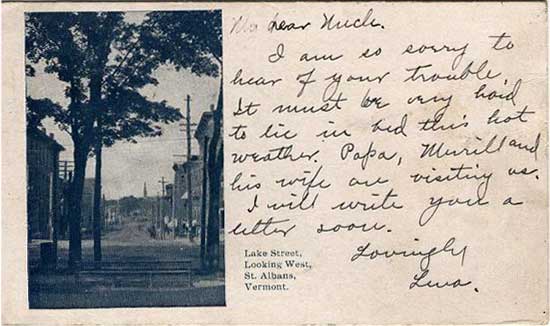 My dear Uncle.
I am so sorry to
hear of your trouble.
It must be very hard
to lie in bed this hot
weather. Papa, Merrill and
his wife are visiting us.
I will write you a
letter soon.
Lovingly
Lena.
Lake Street,
Looking West,
St. Albans,
Vermont.